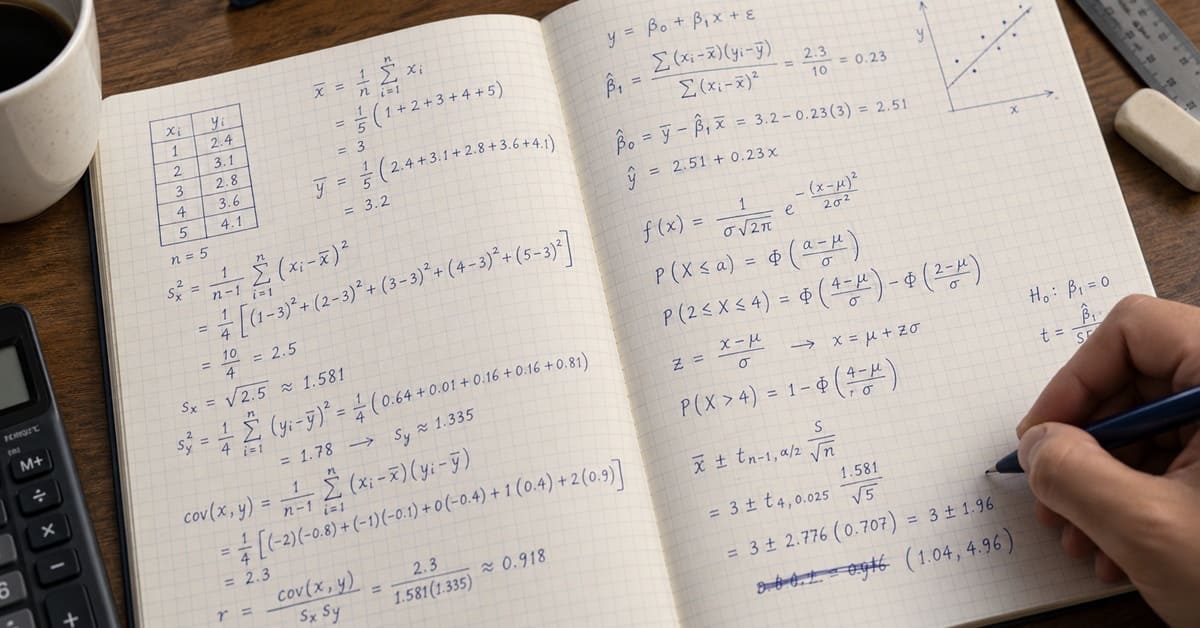 xᵢ yᵢ
1 2.4
2 3.1
3 2.8
4 3.6
5 4.1
n = 5
x̄ = 1/n Σ_{i=1}^{n} xᵢ
= 1/5 (1+2+3+4+5)
= 3
ȳ = 1/5 (2.4+3.1+2.8+3.6+4.1)
= 3.2
sₓ² = 1/(n-1) Σ_{i=1}^{n} (xᵢ-x̄)²
= 1/4 [(1-3)²+(2-3)²+(3-3)²+(4-3)²+(5-3)²]
= 10/4 = 2.5
sₓ = √2.5 ≈ 1.581
s_y² = 1/4 Σ_{i=1}^{n} (yᵢ-ȳ)² = 1/4 (0.64+0.01+0.16+0.16+0.81)
= 1.78 → s_y ≈ 1.335
cov(x,y) = 1/(n-1) Σ_{i=1}^{n} (xᵢ-x̄)(yᵢ-ȳ)
= 1/4 [(-2)(-0.8)+(-1)(-0.1)+0(-0.4)+1(0.4)+2(0.9)]
= 2.3
r = cov(x,y)/(sₓ s_y) = 2.3/(1.581(1.335)) ≈ 0.918
y = β₀ + β₁x + ε
β̂₁ = Σ(xᵢ-x̄)(yᵢ-ȳ)/Σ(xᵢ-x̄)² = 2.3/10 = 0.23
β̂₀ = ȳ - β̂₁x̄ = 3.2-0.23(3) = 2.51
ŷ = 2.51 + 0.23x
f(x) = 1/(σ√2π) e^{-(x-μ)²/2σ²}
P(X≤a) = Φ((a-μ)/σ)
P(2≤X≤4) = Φ((4-μ)/σ) - Φ((2-μ)/σ)
z = (x-μ)/σ → x = μ + zσ
P(X>4) = 1-Φ((4-μ)/σ)
x̄ ± t_{n-1,α/2} s/√n
= 3 ± t_{4,0.025} 1.581/√5
= 3 ± 2.776 (0.707) = 3 ± 1.96
(1.04, 4.96)
y
x
H₀: β₁=0
t = β̂₁
M+
÷
×
−
6
+